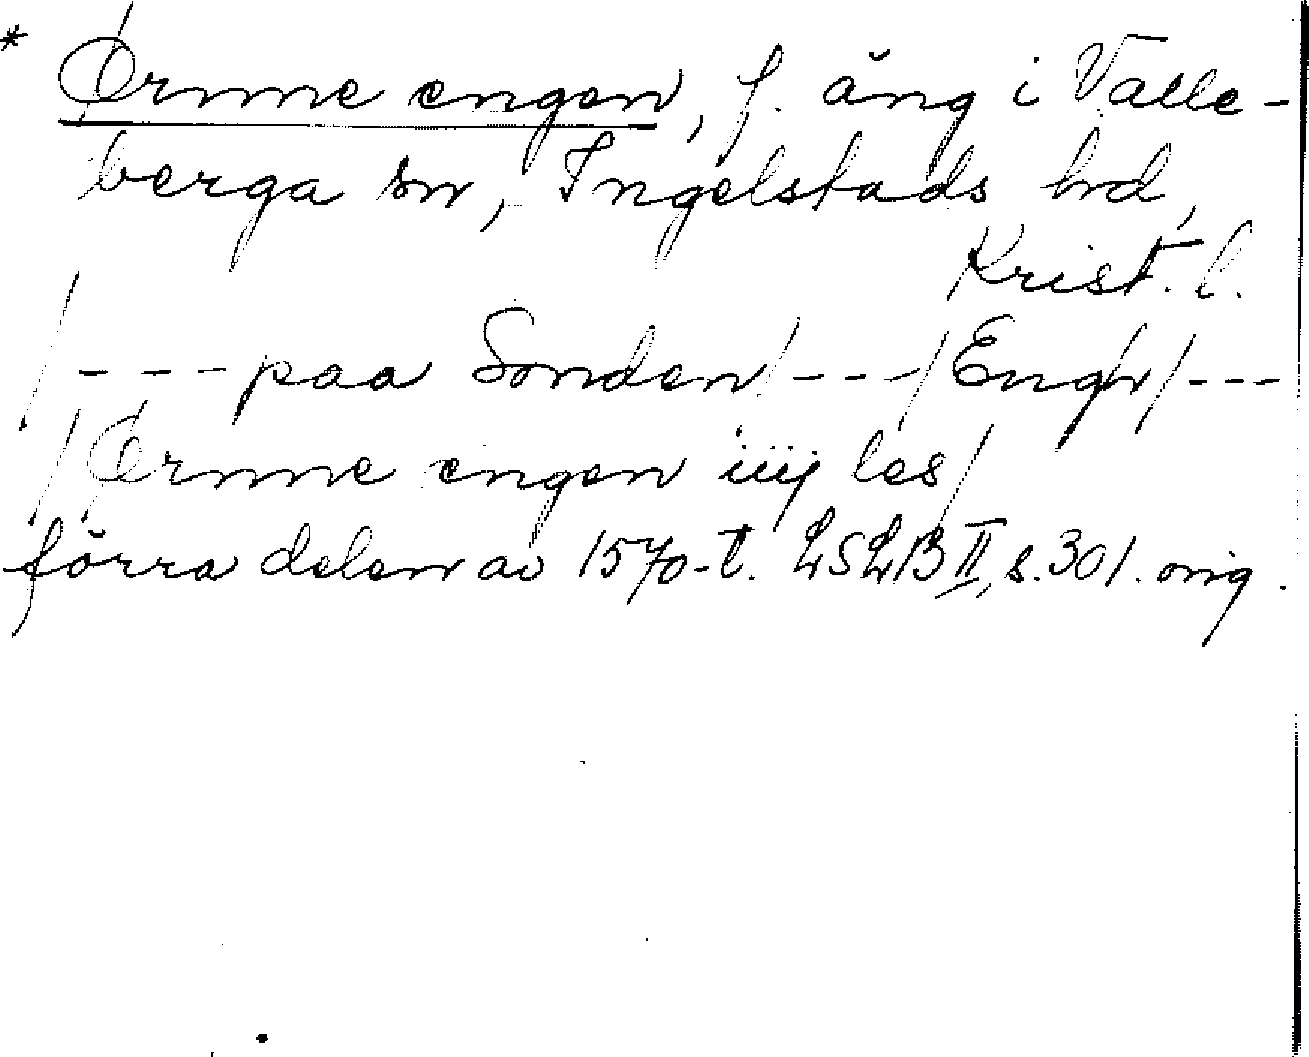 * Ørnne engen, f. äng i Valle-
berga sn, Ingelstads hd,
Krist. l.
/--- paa Sonden/---/Engh/---
/Ørnne engen iiij les/
förra delen av 1570-t. LSLB II, s. 301. orig.